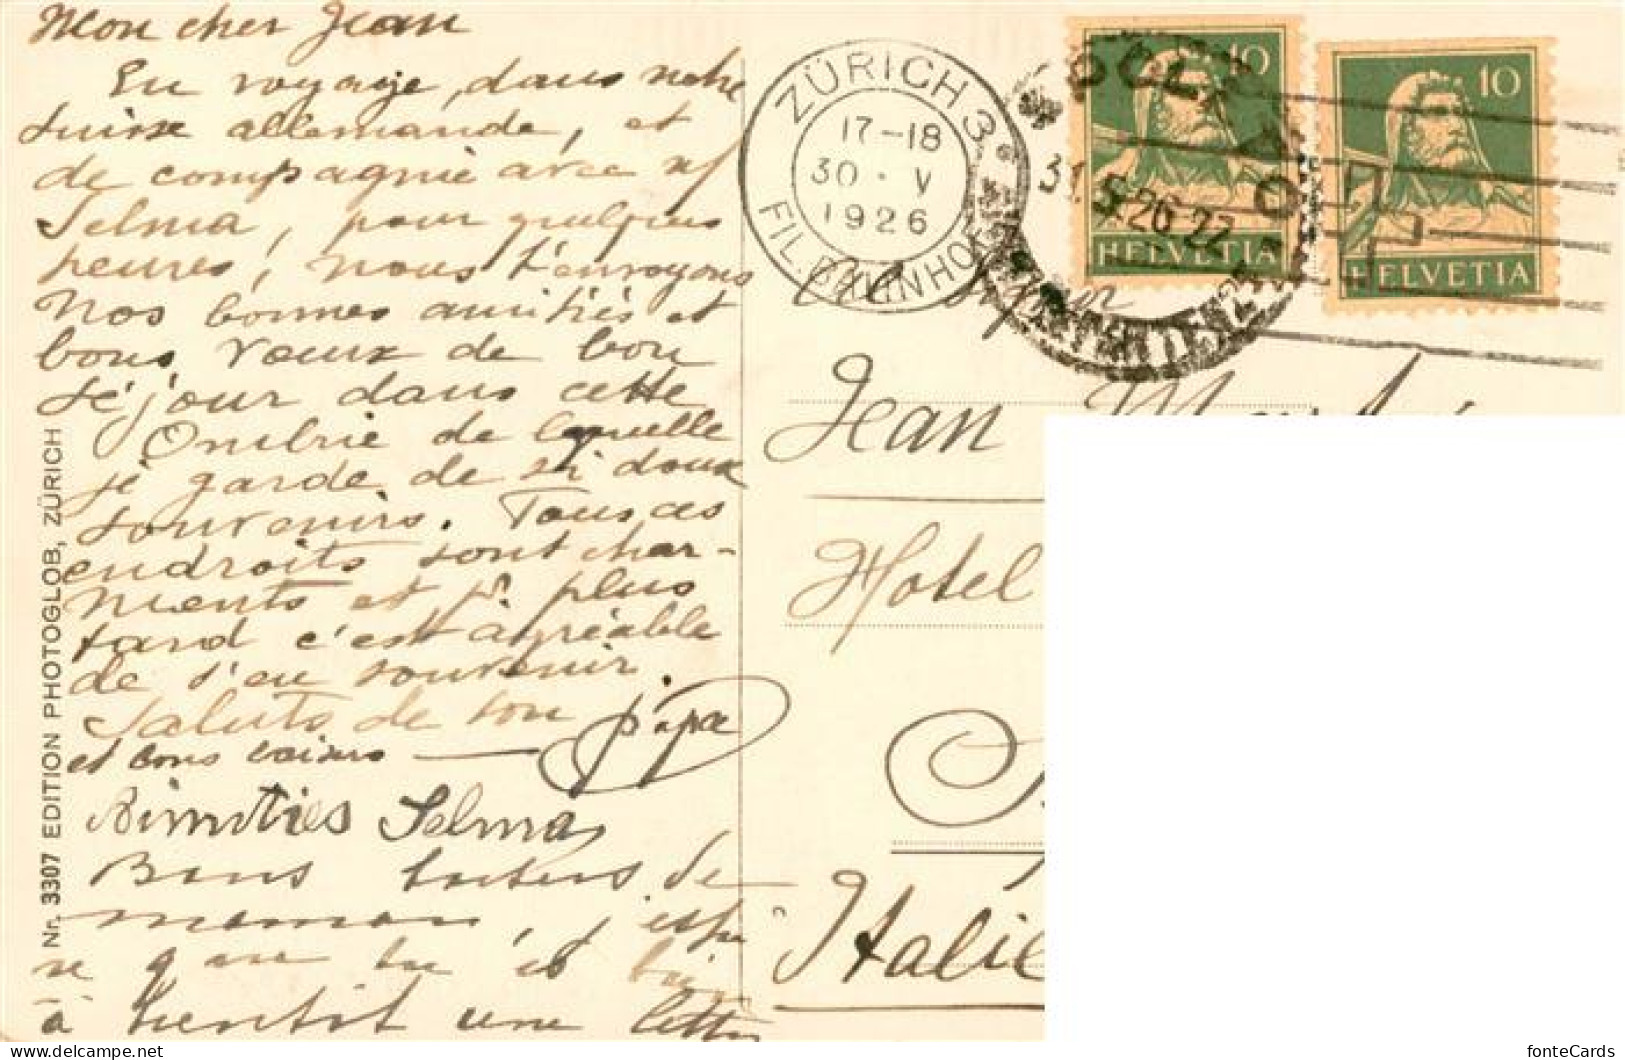 Mon cher Jean
En voyage, dans notre
suisse allemande, et
de compagnie avec
Selma, pour quelques
heures, nous t'envoyons
nos bonnes amitiés et
bons voeux de bon
séjour dans cette
Ombrie de laquelle
je garde de si doux
souvenirs. Tous ces
endroits sont char-
ments et plus
tard c'est agréable
de s'en souvenir.
Saluts de ton papa
et bons baisers
Selma
Bons baisers de
maman, j'espère
que tu
à bientôt une lettre
Nr. 3307 EDITION PHOTOGLOB, ZÜRICH
ZÜRICH 3
17-18
30 · V
1926
FIL. BAHNHOF
10
HELVETIA
10
HELVETIA
31.5.26-22
Jean
Hotel
Italie
delcampe.net
fonteCards